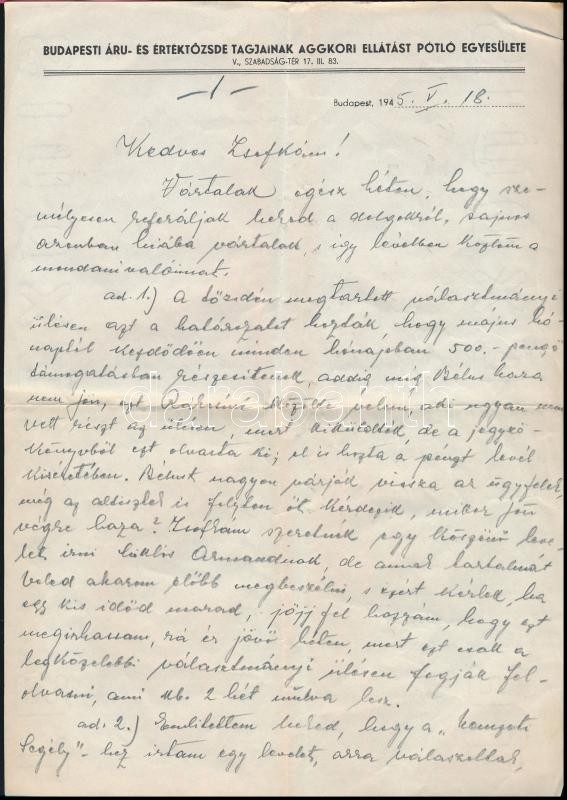 BUDAPESTI ÁRU- ÉS ÉRTÉKTŐZSDE TAGJAINAK AGGKORI ELLÁTÁST PÓTLÓ EGYESÜLETE
V., SZABADSÁG-TÉR 17. III. 83.
-1-
Budapest, 1945. V. 18.
Kedves Zsofkám!
Vártalak egész héten, hogy sze-
mélyesen referáljak neked a dolgokról, sajnos
azonban hiába vártalak, s így levélben közlöm a
mondanivalóimat.
ad. 1.) A tőzsdén megtartott választmányi
ülésen azt a határozatot hozták, hogy május hó-
naptól kezdődően minden hónapban 500.- pengő
támogatásban részesítenek, addig míg Bélus haza
nem jön, ezt közölte velem, aki ugyan nem
vett részt az ülésen mert kiküldték, de a jegyző-
könyvből ezt olvasta ki; el is hozta a pénzt levél
kíséretében. Bélust nagyon várják vissza az ügyfelek,
még az altisztek is folyton őt kérdezik, mikor jön
végre haza? Zsofkám szeretnék egy köszönő leve-
let írni Miklós Armandnak, de annak tartalmát
veled akarom előbb megbeszélni, s ezért kérlek, ha
egy kis időd marad, jöjj fel hozzám, hogy ezt
megírhassam, rá ér jövő héten, mert ezt csak a
legközelebbi választmányi ülésen fogják fel-
olvasni, ami kb. 2 hét múlva lesz.
ad. 2.) Említettem neked, hogy a „Nemzeti
Segély"-hez írtam egy levelet, arra válaszoltak,